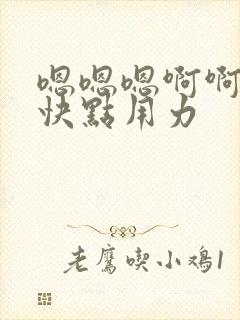 嗯嗯嗯啊啊
快點用力
老鷹喫小鸡1